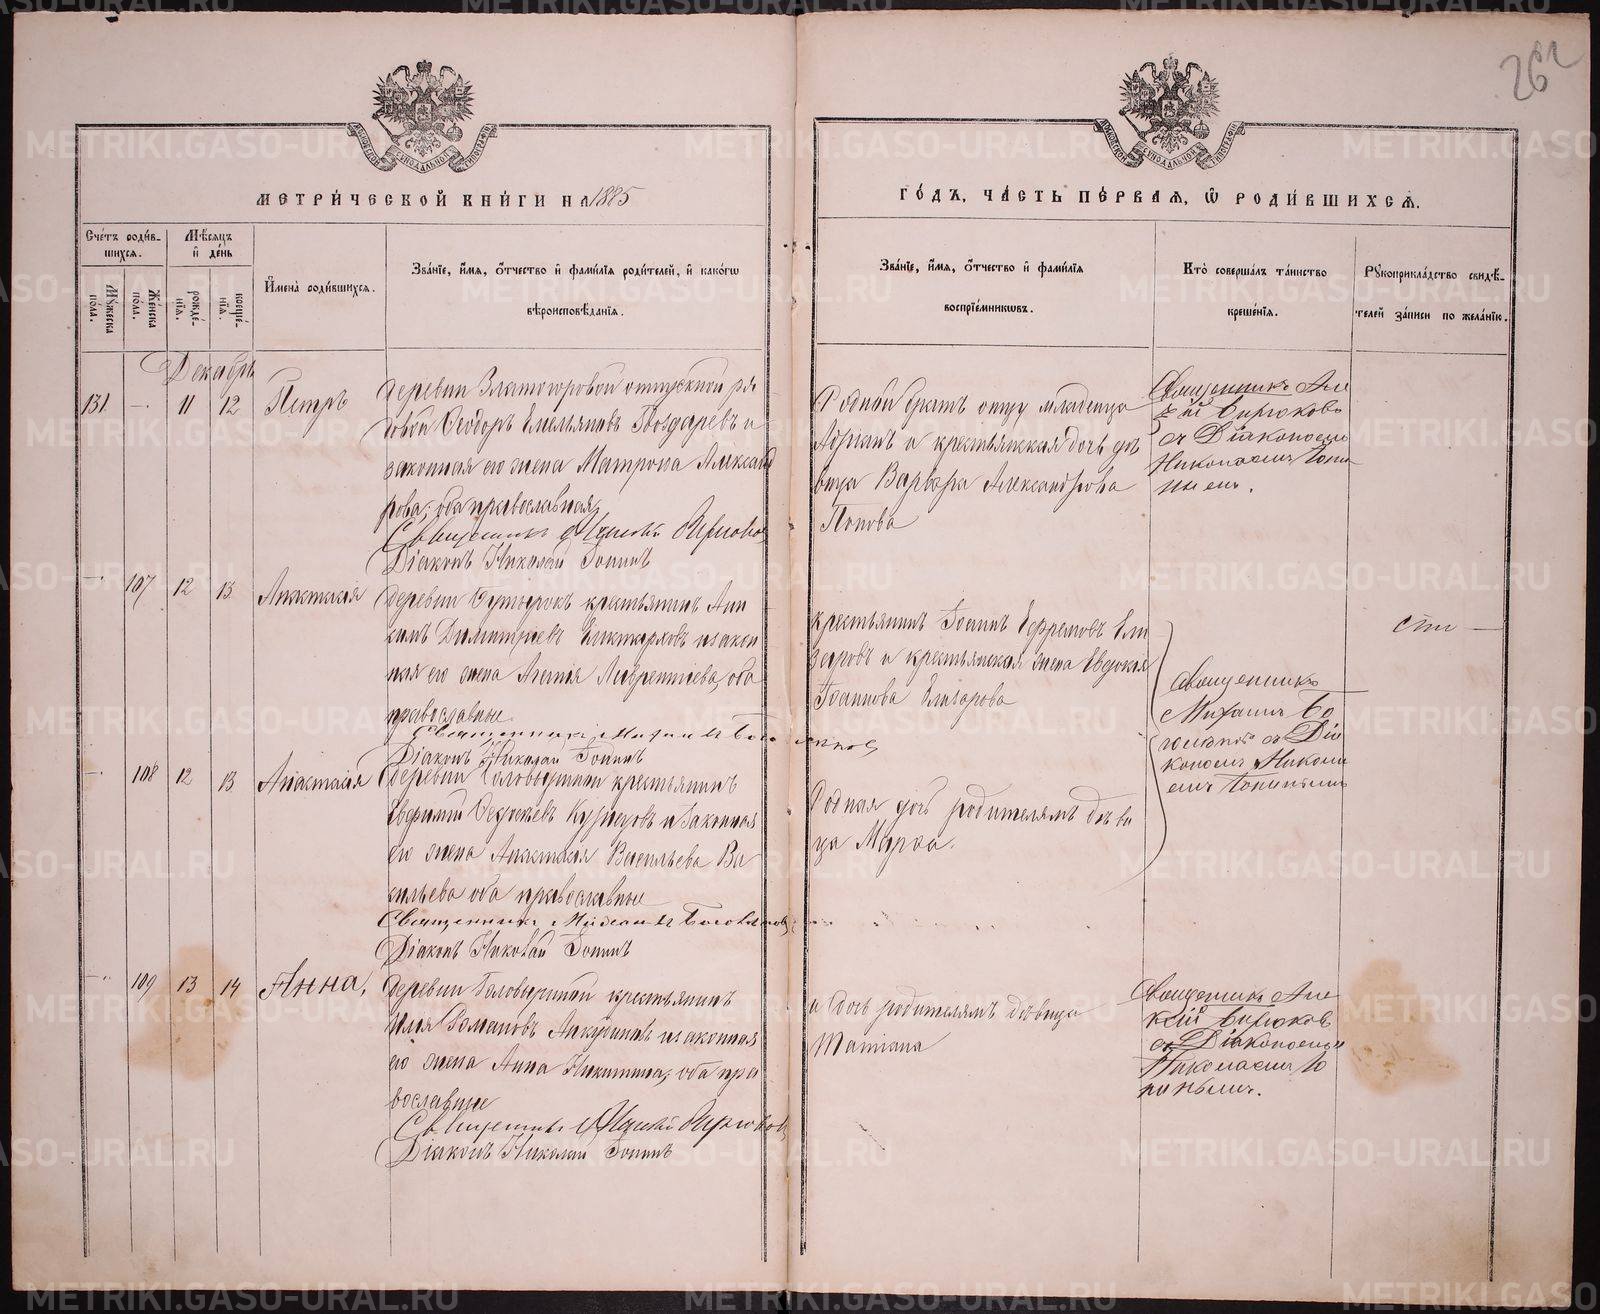 262
МОСКОВСКОЙ СѴНОДАЛЬНОЙ ТИПОГРАФІИ
МОСКОВСКОЙ СѴНОДАЛЬНОЙ ТИПОГРАФІИ
МЕТРИ́ЧЕСКОЙ КНИ́ГИ НА 1885
ГО́ДЪ, ЧА́СТЬ ПЕ́РВАЯ, Ѽ РОДИ́ВШИХСЯ.
Сче́тъ роди́в-
шихся.
Мѣ́сяцъ
и҆ де́нь
Мꙋ́жеска
по́ла.
Же́нска
по́ла.
рожде́-
нїя.
креще́-
нїя.
И҆мена̀ роди́вшихся.
Зва́нїе, и҆́мя, ѻ҆́тчество и҆ фами́лїя роди́телей, и҆ како́гѡ
вѣроисповѣ́данїя.
Зва́нїе, и҆́мя, ѻ҆́тчество и҆ фами́лїя
воспрїе́мникѡвъ.
Кто̀ соверша́лъ та́инство
креще́нїя.
Рꙋкоприкла́дство свидѣ́-
телей за́писи по жела́нїю.
Декабрь
131. — 11 12 Петръ
деревни Златогоровой отпускной ря
довой Ѳеодоръ Емельяновъ Гвоздаревъ и
законная его жена Матрона Александ
рова; оба православная,
Священникъ Алексѣй Бирюковъ
Діаконъ Николай Іонинъ
Родный братъ отцу младенца
Адріанъ и крестьянская дочь дѣ
вица Варвара Александрова
Попова
Священникъ Але
ксѣй Бирюковъ
съ Діакономъ
Николаемъ Іони
нымъ.
— 107 12 13 Анастасія
деревни Бутырокъ крестьянинъ Аки
кимъ Димитріевъ и закон
ная его жена Агапія Лаврентіева, оба
православные
Священникъ Михаилъ
Діаконъ Николай Іонинъ
крестьянинъ Іоаннъ Ефремовъ Ели
заровъ и крестьянская жена Евдокія
Іоаннова Елизарова
Священникъ
Михаилъ Бо
съ Діа
кономъ Никола
емъ Іонинымъ
сти —
— 108 12 13 Анастасія
деревни Головыриной крестьянинъ
Евфимій Ѳедосѣевъ Кузнецовъ и законная
его жена Анастасія Васильева Ва
сильева оба православные
Священникъ Михаилъ
Діаконъ Николай Іонинъ
Родная дочь родителямъ дѣви
ца Марѳа.
— 109 13 14 Анна,
деревни Головыриной крестьянинъ
Илья Романовъ и законная
его жена Анна Никитина, оба пра
вославные
Священникъ Алексѣй Бирюковъ
Діаконъ Николай Іонинъ
и дочь родителямъ дѣвица
Татіана
Священникъ Але
ксѣй Бирюковъ
съ Діакономъ
Николаемъ Іо
нинымъ.
METRIKI.GASO-URAL.RU